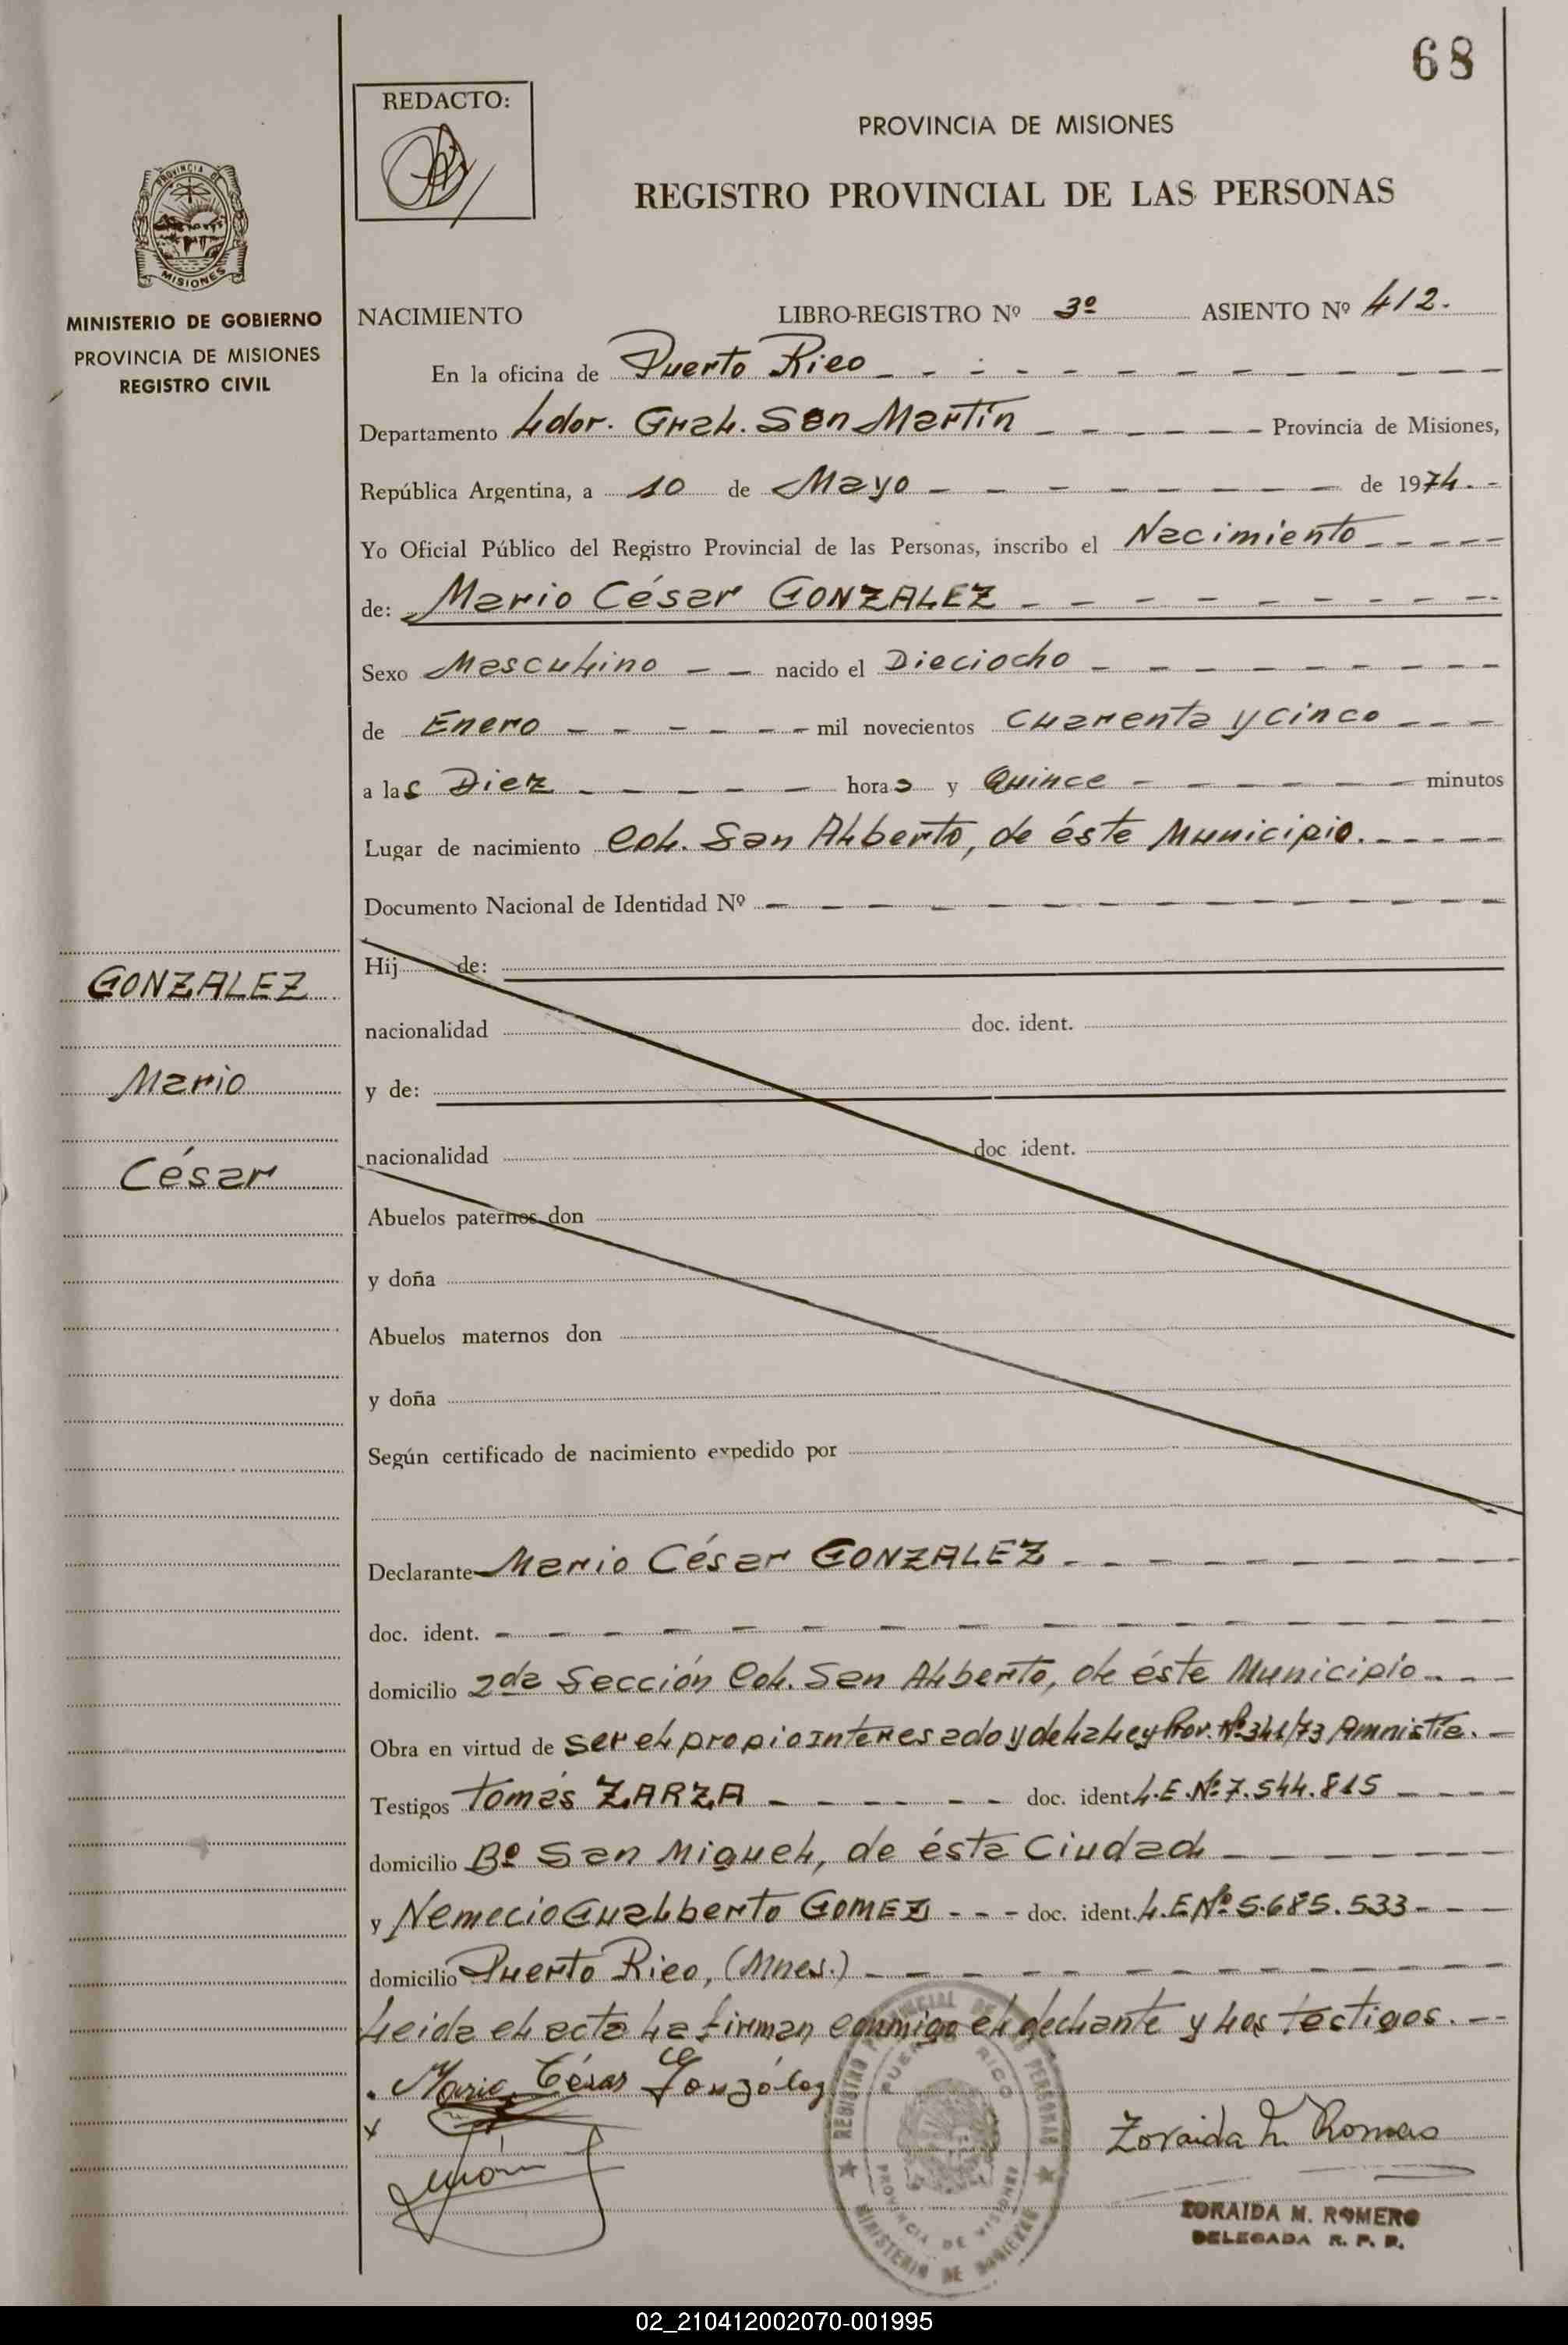 68
REDACTO:
PROVINCIA DE MISIONES
REGISTRO PROVINCIAL DE LAS PERSONAS
PROVINCIA DE
MISIONES
MINISTERIO DE GOBIERNO
PROVINCIA DE MISIONES
REGISTRO CIVIL
NACIMIENTO LIBRO-REGISTRO Nº 3º ASIENTO Nº 412.
En la oficina de Puerto Rico
Departamento Ldor. Gral. San Martín Provincia de Misiones,
República Argentina, a 10 de Mayo de 1974.
Yo Oficial Público del Registro Provincial de las Personas, inscribo el Nacimiento
de: Mario César GONZALEZ
Sexo Masculino nacido el Dieciocho
de Enero mil novecientos Cuarenta y cinco
a las Diez horas y Quince minutos
Lugar de nacimiento Col. San Alberto, de éste Municipio.
Documento Nacional de Identidad Nº
GONZALEZ
Mario
César
Hij de:
nacionalidad doc. ident.
y de:
nacionalidad doc ident.
Abuelos paternos don
y doña
Abuelos maternos don
y doña
Según certificado de nacimiento expedido por
Declarante Mario César GONZALEZ
doc. ident.
domicilio 2da Sección Col. San Alberto, de éste Municipio
Obra en virtud de ser el propio interesado y de la Ley Prov. Nº 341/73 Amnistía.
Testigos Tomás ZARZA doc. ident. L.E.Nº 7.544.815
domicilio Bº San Miguel, de ésta Ciudad
y Nemecio Gualberto GOMEZ doc. ident. L.E Nº 5.685.533
domicilio Puerto Rico, (Mnes.)
Leida el acta la firman conmigo el declante y los testigos.
Mario César González
REGISTRO PROVINCIAL DE LAS PERSONAS
PUERTO RICO
PROVINCIA DE MISIONES
MINISTERIO DE GOBIERNO
Zoraida M. Romero
ZORAIDA M. ROMERO
DELEGADA R. P. P.
02_210412002070-001995